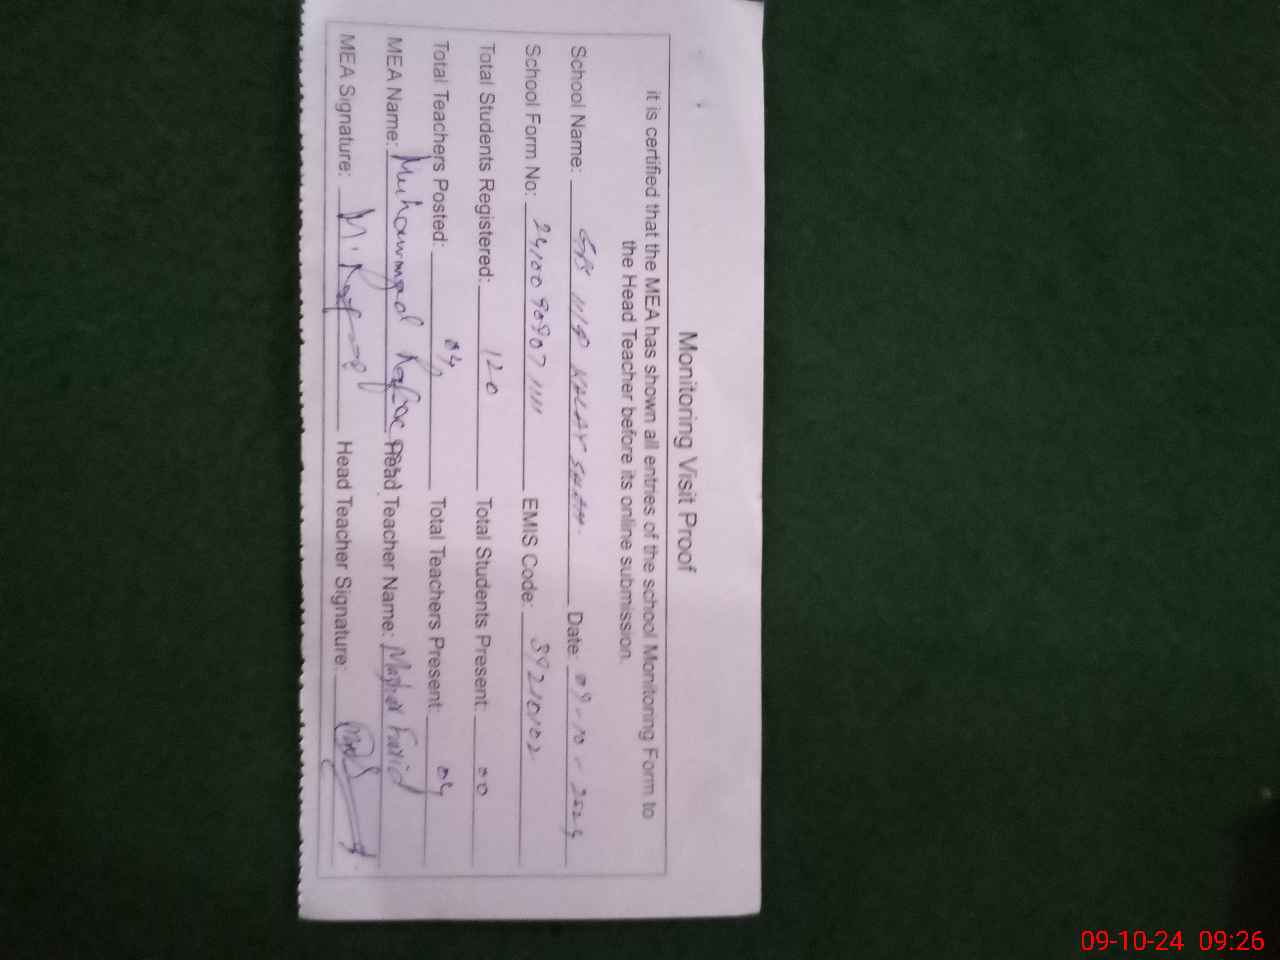 Monitoring Visit Proof
it is certified that the MEA has shown all entries of the school Monitoring Form to
the Head Teacher before its online submission.
School Name: Date: 09-10-2024
School Form No: 2410090907 EMIS Code: 39210102
Total Students Registered: 120 Total Students Present: 00
Total Teachers Posted: 04 Total Teachers Present: 04
MEA Name: Muhammad Head Teacher Name: Farid
MEA Signature: Head Teacher Signature:
09-10-24 09:26